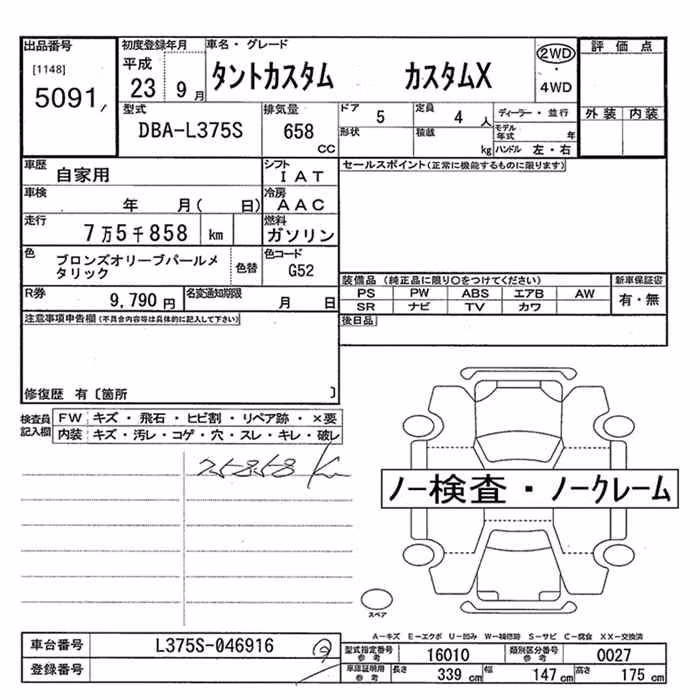 出品番号 初度登録年月 車名・グレード 評価点
[1148] 平成 2WD
5091 23 9月 タントカスタム カスタムX ・
4WD
型式 排気量 ドア 5 定員 4 人 ディーラー・並行 外装 内装
DBA-L375S 658 cc 形状 積載 kg モデル年式 年
ハンドル 左・右
車歴 自家用 シフト IAT セールスポイント(正常に機能するものに限ります)
車検 年 月( 日) 冷房 AAC
走行 7万5千858 km 燃料 ガソリン
色 ブロンズオリーブパールメタリック 色替 色コード G52
装備品(純正品に限り○をつけてください) 新車保証書
R券 9,790円 名変通知期限 月 日 PS PW ABS エアB AW 有・無
SR ナビ TV カワ
注意事項申告欄(不具合内容等は具体的に記入して下さい) 後日品
修復歴 有〔箇所 〕
検査員記入欄 FW キズ・飛石・ヒビ割・リペア跡・×要
内装 キズ・汚レ・コゲ・穴・スレ・キレ・破レ
75858 Km
ノー検査・ノークレーム
スペア
A-キズ E-エクボ U-凹み W-補修跡 S-サビ C-腐食 XX-交換済
車台番号 L375S-046916 型式指定番号 参考 16010 類別区分番号 参考 0027
登録番号 車庫証明用 参考 長さ 339 cm 幅 147 cm 高さ 175 cm